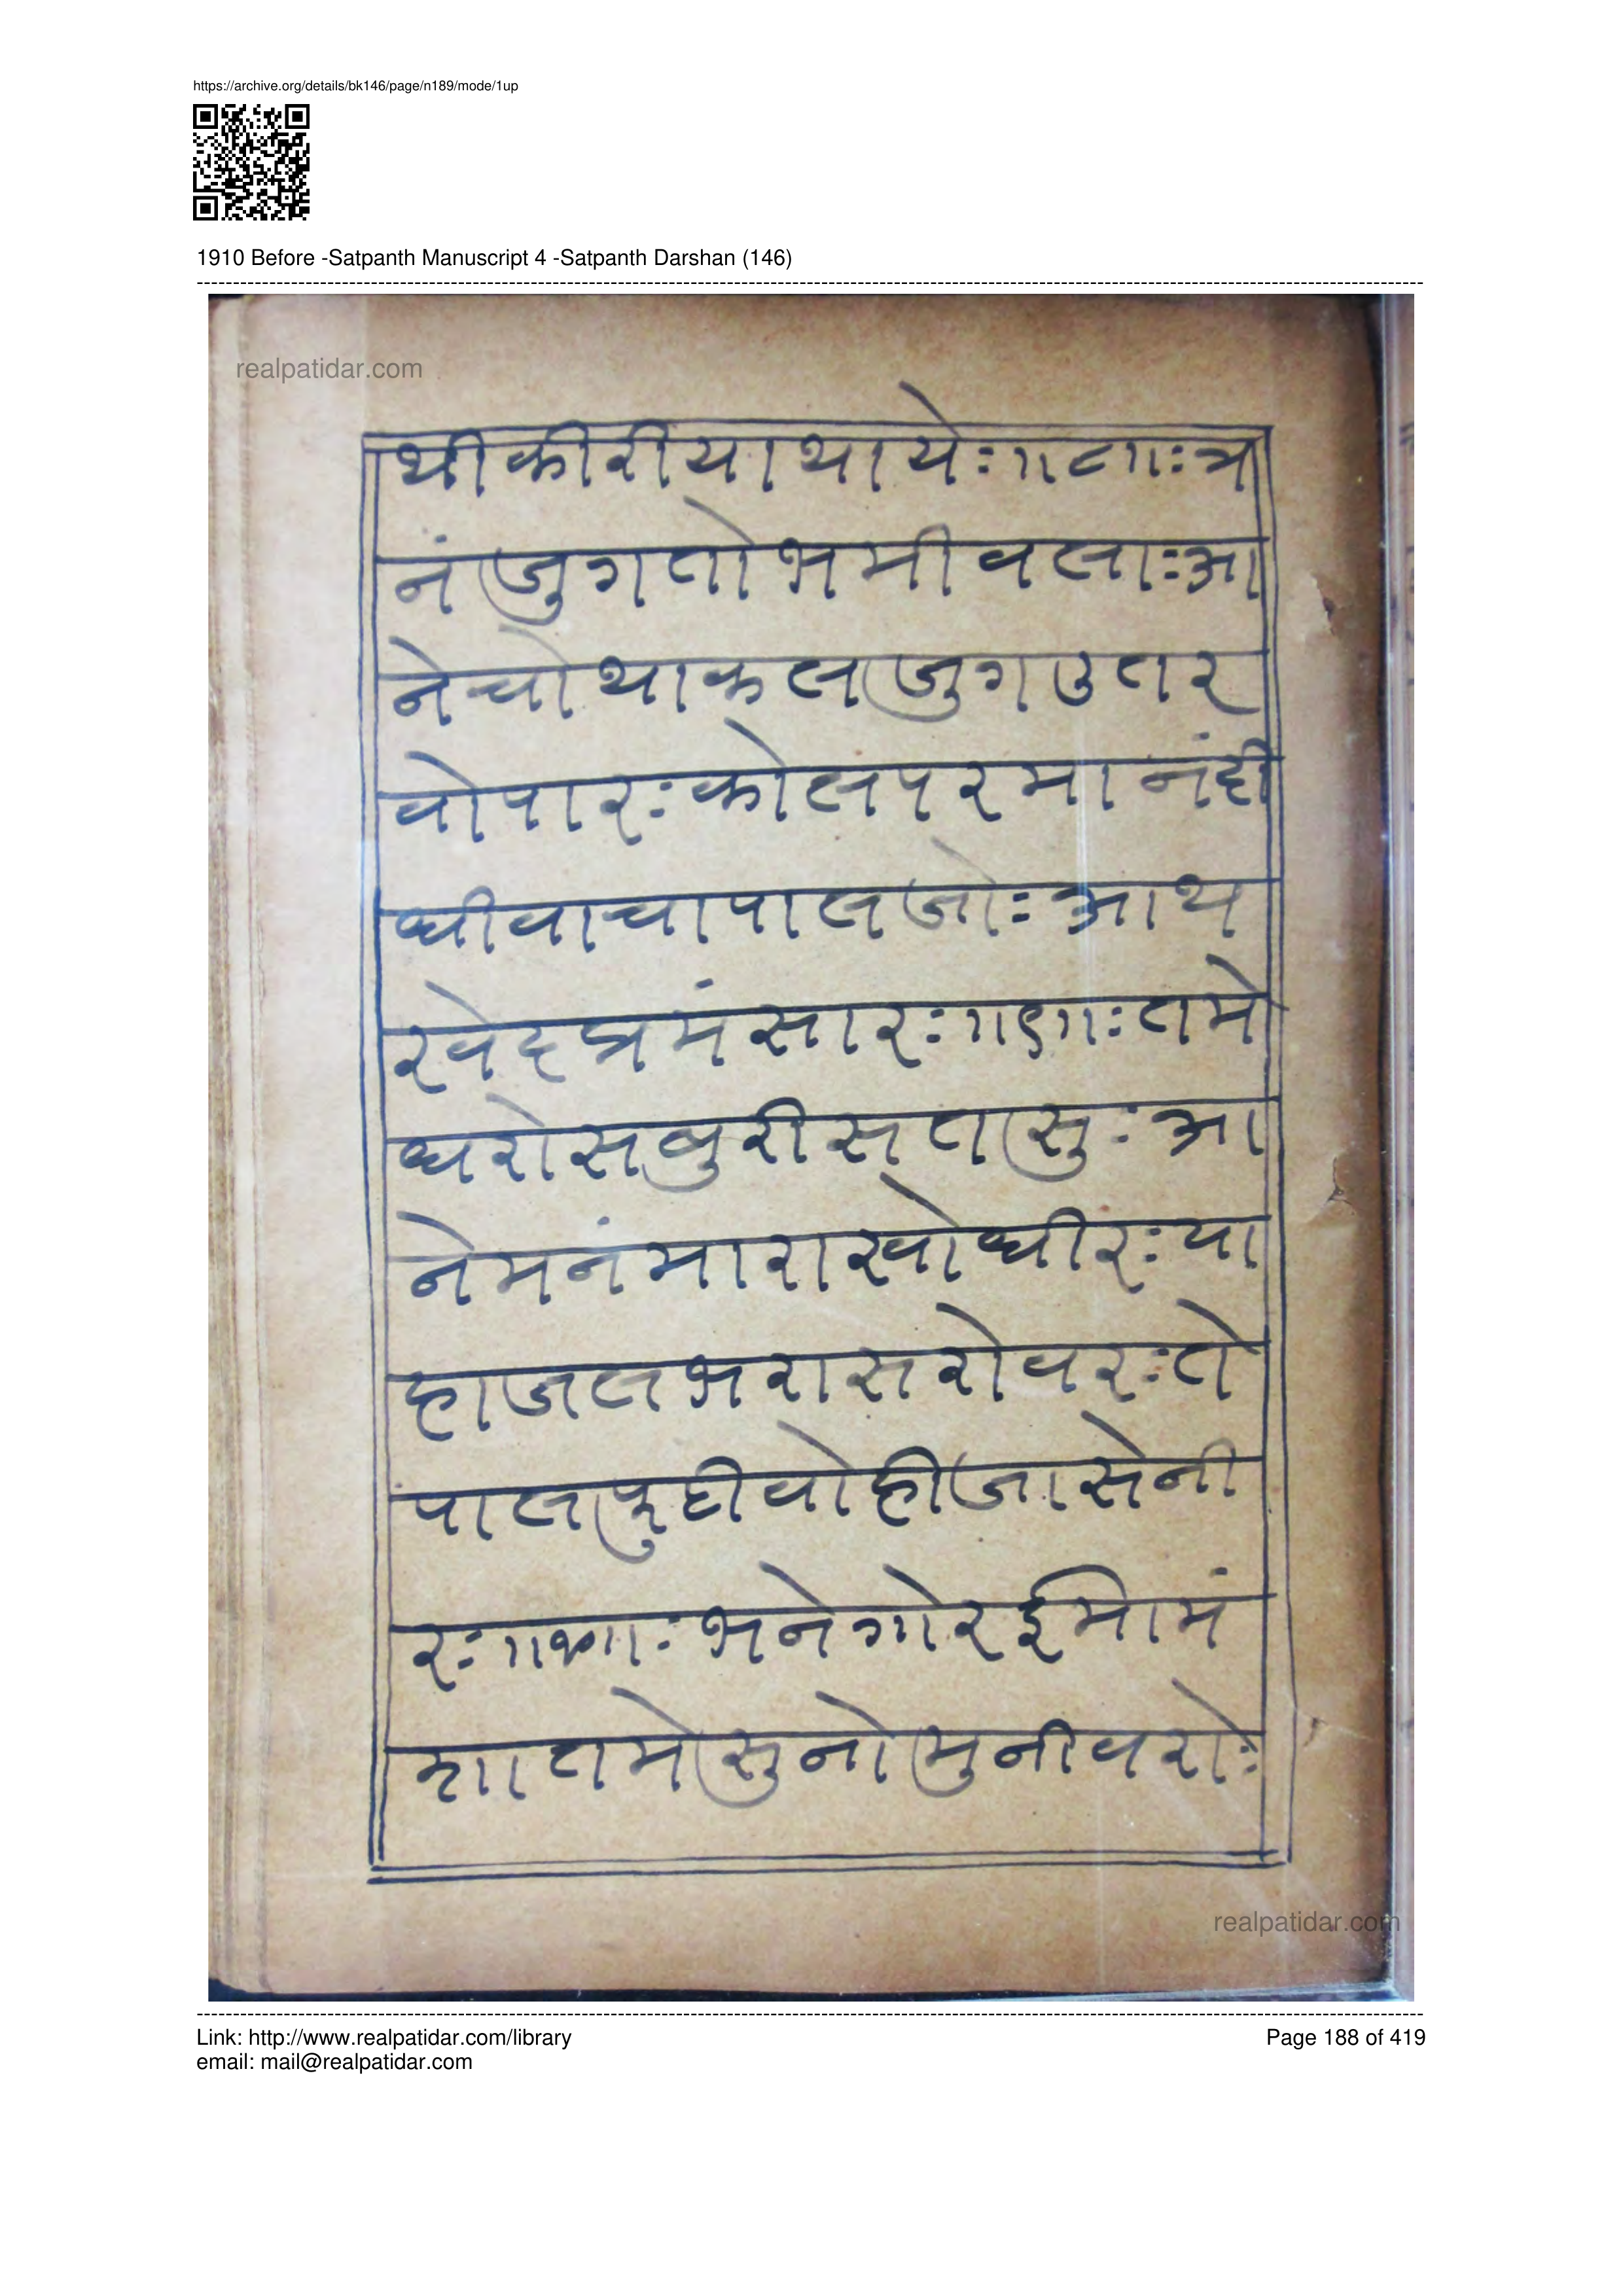 https://archive.org/details/bk146/page/n189/mode/1up
1910 Before -Satpanth Manuscript 4 -Satpanth Darshan (146)
realpatidar.com
थीकीरीयाथाये:॥८॥:त्र
नंजुगतोभमीवला:आ
नेचोथाकलजुगउतर
वोपार:कोलपरमानंदी
धीवाचापालजो:आथ
रवेदत्रमंसार:॥९॥:तमे
धरोसबुरीसतसु:आ
नेमनंमाराखोधीर:या
हाजलभरासरोवर:ते
पालफुटीवोहीजासेनी
र:॥१०॥:भनेगोरईमामं
शातमेसुनोमुनीवरो:
realpatidar.com
Link: http://www.realpatidar.com/library
Page 188 of 419
email: mail@realpatidar.com